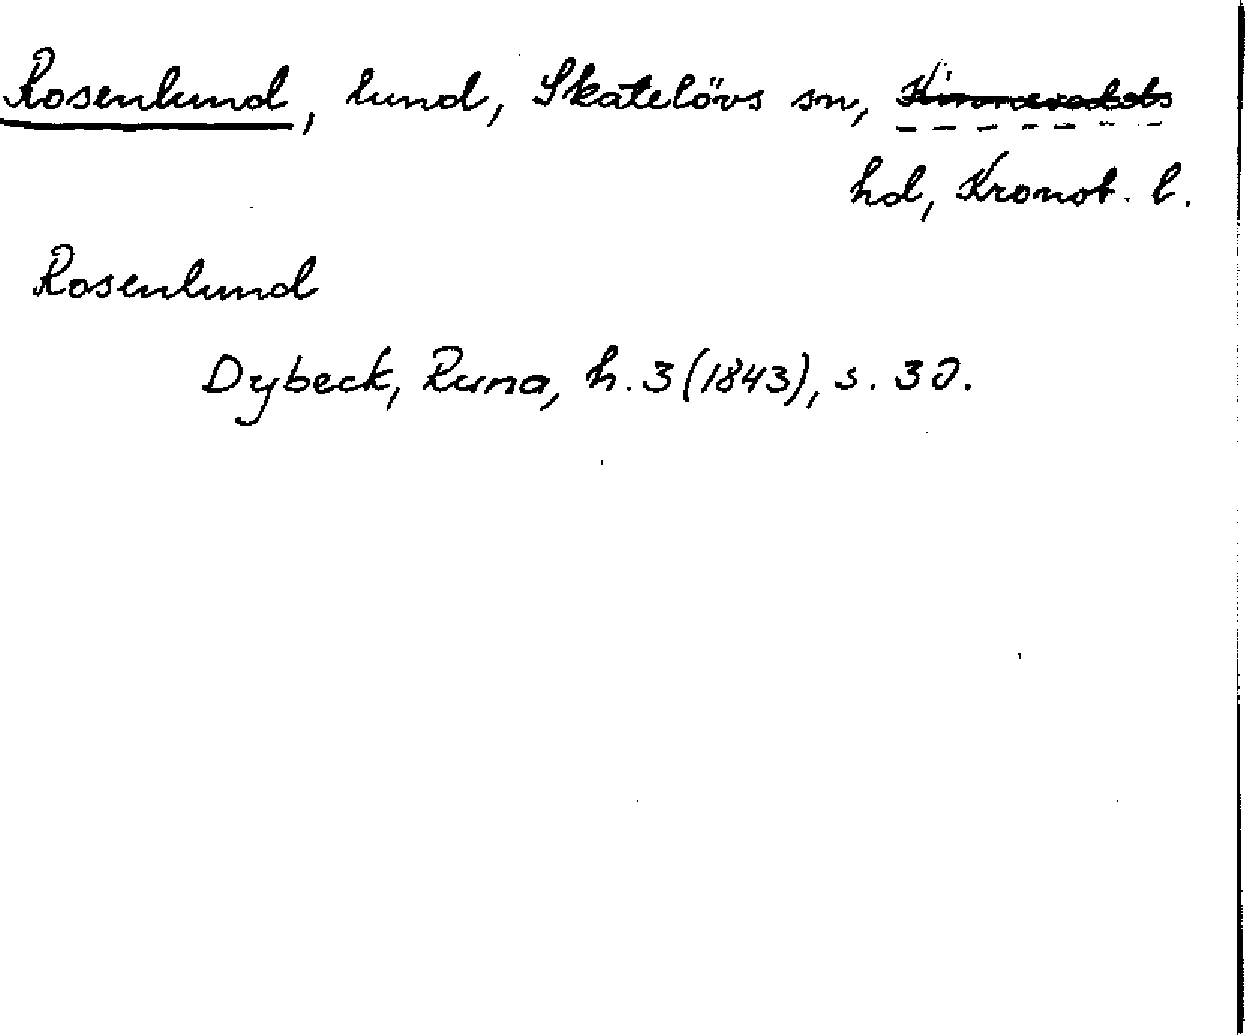 Rosenlund, lund, Skatelövs sn, Kinnevalds
hd, Kronob. l.
Rosenlund
Dybeck, Runa, h. 3 (1843), s. 30.